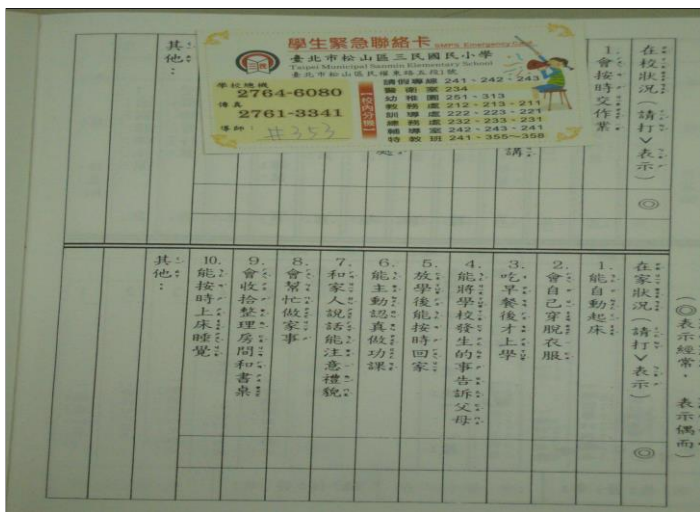 學生緊急聯絡卡 SMPS Emergency Card
臺北市松山區三民國民小學
Taipei Municipal Sanmin Elementary School
臺北市松山區民權東路五段1號
學校總機
2764-6080
傳真
2761-3341
導師：
#353
【校內分機】
請假專線 241、242、243
警衛室 234
幼稚園 251、313
教務處 212、213、211
訓導處 222、223、221
總務處 232、233、231
輔導室 242、243、241
特教班 241、355~358
在校狀況（請打∨表示）
◎
1.會按時交作業
講
其他：
（◎表示經常， 表示偶而）
在家狀況（請打∨表示）
◎
1.能自動起床
2.會自己穿脫衣服
3.吃早餐後才上學
4.能將學校發生的事告訴父母
5.放學後能按時回家
6.能主動認真做功課
7.和家人說話能注意禮貌
8.會幫忙做家事
9.會收拾整理房間和書桌
10.能按時上床睡覺
其他：